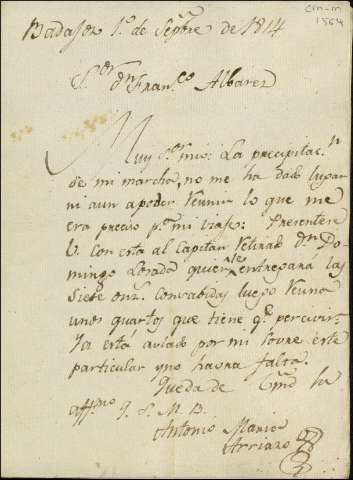 CRN-M
1564
Badajoz 1º. de Sepbre de 1814
S.or dn Franco Albarez
Muy S.or mio: La precipitac.n
de mi marcha, no me ha dado lugar
ni aun a poder reunir lo que me
era preciso p.a mi viaje: Presentese
V. con esta al Capitan retirado dn Do-
mingo Losada quien le entregará las
siete onz. convabidas luego reuna
unos quartos que tiene qe percivir.
Ya esta avisado por mi sovre este
particular y no havra falta.
Queda de Vmd su
affmo Q. S. M. B.
Antonio Maria
Arriazo